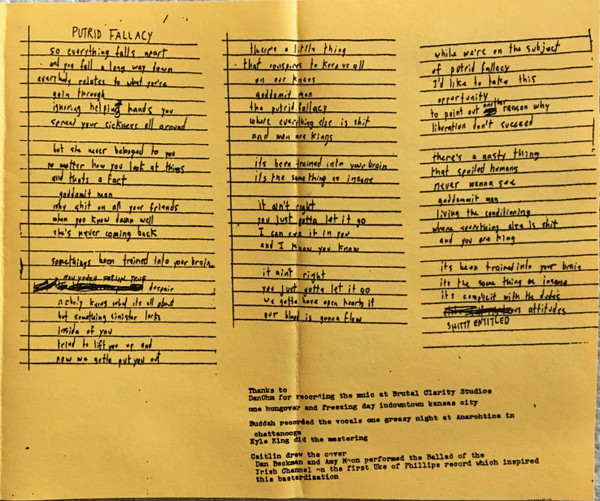 PUTRID FALLACY
so everything falls apart
and you fall a long way down
everybody relates to what you're
goin through
ignoring helping hands you
spread your sickness all around
but she never belonged to you
no matter how you look at things
and thats a fact
goddamit man
why shit on all your friends
when you know damn well
she's never coming back
somethings been trained into your brain
despair
nobody knows what its all about
but something sinister lurks
inside of you
tried to lift you up and
now we gotta put you out
there's a little thing
that conspires to keep us all
on our knees
goddamit man
the putrid fallacy
where everything else is shit
and men are kings
its been trained into your brain
its the same thing as insane
it ain't right
you just gotta let it go
I can see it in you
and I know you know
it aint right
you just gotta let it go
we gotta have open hearts if
our blood is gonna flow
while we're on the subject
of putrid fallacy
I'd like to take this
opportunity
to point out another reason why
liberation don't succeed
there's a nasty thing
that spoiled humans
never wanna see
goddammit man
living the conditioning
where everything else is shit
and you are king
its been trained into your brain
its the same thing as insane
its complicit with the dudes
attitudes
SHITTY ENTITLED
Thanks to
DanOhm for recording the muic at Brutal Clarity Studios
one hungover and freezing day indowntown kansas city
Buddah recorded the vocals one greasy night at Anarchtica in
chattanooga
Kyle King did the mastering
Caitlin drew the cover
Dan Beckman and Amy Moon performed the Ballad of the
Irish Channel on the first Uke of Phillips record which inspired
this bastardization